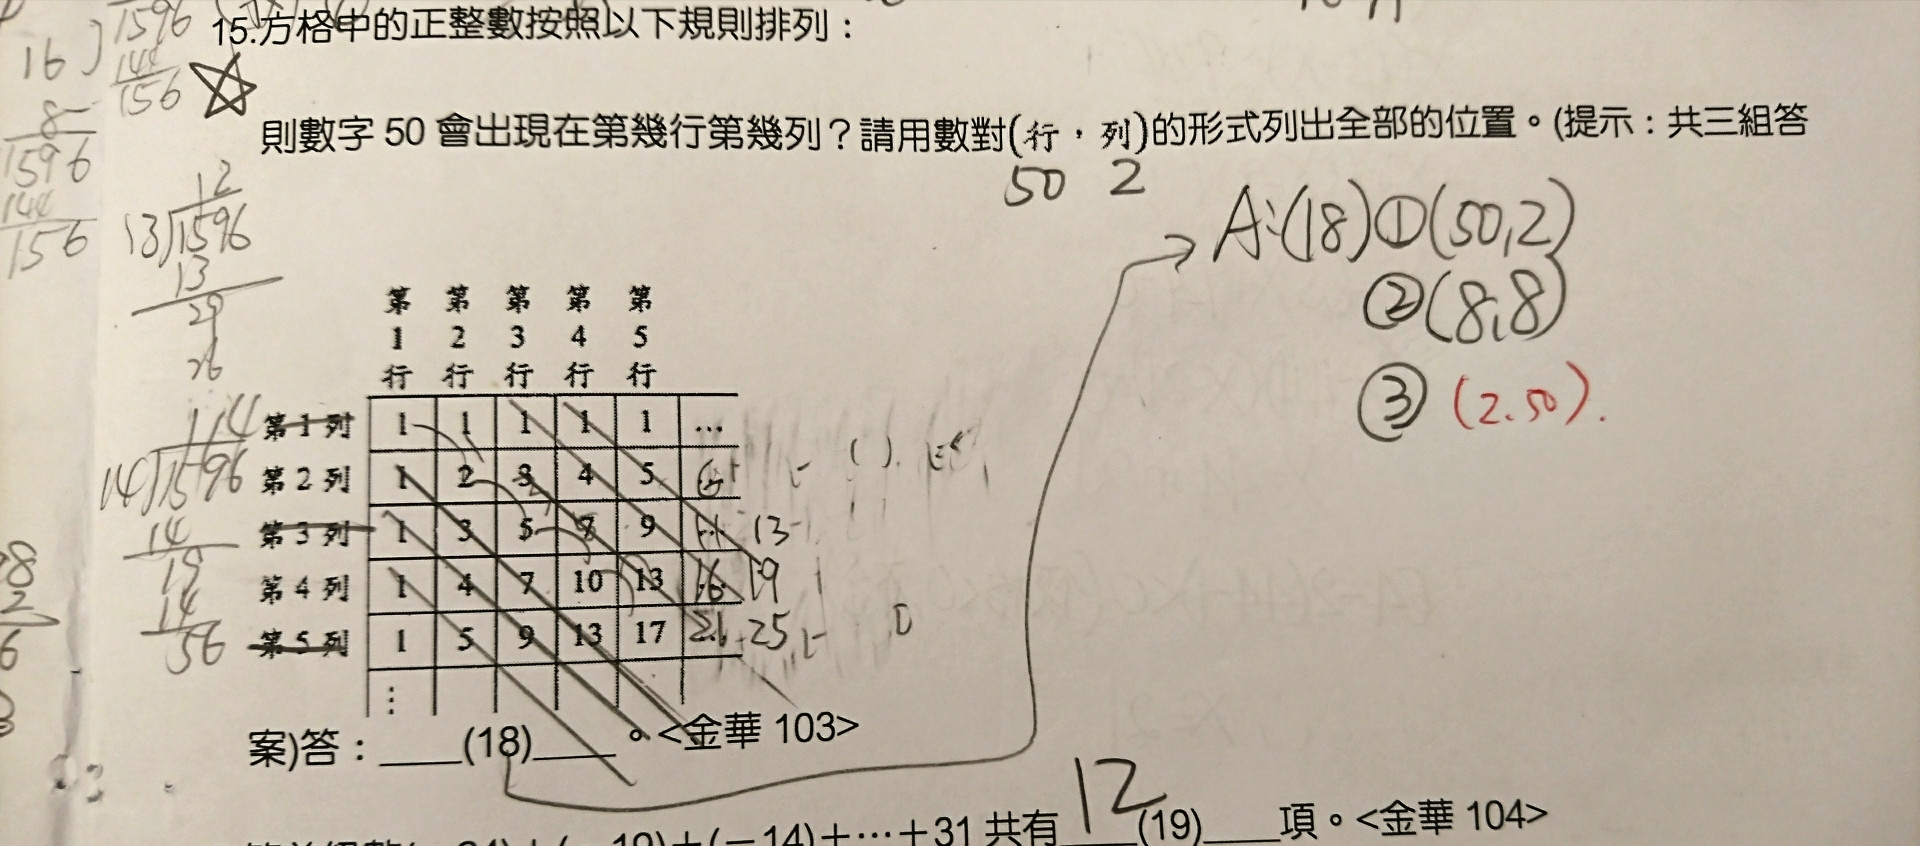 1596
16
144
156
8
1596
144
156
12
13 1596
13
29
26
114
14 1596
14
19
14
56
15.方格中的正整數按照以下規則排列：
則數字 50 會出現在第幾行第幾列？請用數對(行，列)的形式列出全部的位置。(提示：共三組答
50 2
A:(18)①(50,2)
②(8,8)
③(2.50).
第1行 第2行 第3行 第4行 第5行
第1列 1 1 1 1 1 ...
第2列 1 2 3 4 5 6
第3列 1 3 5 7 9 11 13
第4列 1 4 7 10 13 16 19
第5列 1 5 9 13 17 21 25
⋮
案)答：____(18)____。<金華 103>
+31 共有 12 (19)____項。<金華 104>